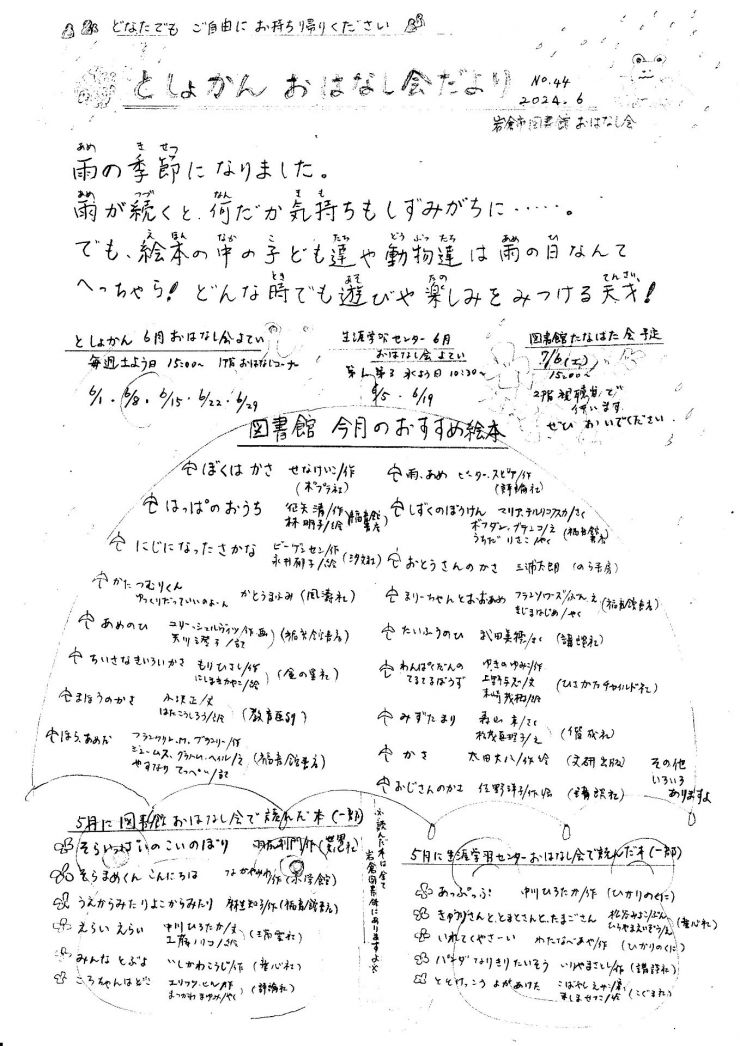 どなたでも ご自由に お持ち帰りください
としょかん おはなし会だより
No.44
2024.6
岩倉市図書館 おはなし会
雨の季節になりました。
雨が続くと、何だか気持ちもしずみがちに……。
でも、絵本の中の子ども達や動物達は雨の日なんて
へっちゃら! どんな時でも遊びや楽しみをみつける天才!
としょかん 6月 おはなし会よてい
毎週土よう日 15:00~ 1階 おはなしコーナー
6/1・6/8・6/15・6/22・6/29
生涯学習センター 6月
おはなし会 よてい
第1、第3 水よう日 10:30~
6/5・6/19
図書館たなばた会予定
7/6(土)
15:00~
2階視聴覚室で
行います
ぜひ おいでください
図書館 今月のおすすめ絵本
ぼくは かさ せなけいこ/作
(ポプラ社)
はっぱのおうち 征矢清/作
林明子/絵 (福音館書店)
にじになったさかな
永井郁子/絵 (汐文社)
かたつむりくん
かとうまふみ (風濤社)
あめのひ ユリー・シュルヴィッツ/作・画
矢川澄子/訳 (福音館書店)
ちいさなきいろいかさ もりひさし/作
にしまきかやこ/絵 (金の星社)
まほうのかさ
はたこうしろう/絵 (教育画劇)
ほら、あめだ フランクリン.M.ブランリー/作
ジェームス、グラハム、ヘイル/え
やすなり てっぺい/訳 (福音館書店)
雨、あめ ピーター・スピアー/作
(評論社)
しずくのぼうけん マリア・テルリコフスカ/さく
ボフダン・ブテンコ/え
うちだりさこ/やく (福音館書店)
おとうさんのかさ 三浦太郎 (のら書房)
まりーちゃんとおおあめ フランソワーズ/ぶん、え
きじまはじめ/やく (福音館書店)
たいふうのひ 武田美穂/さく (講談社)
わんぱくだんの
てるてるぼうず
ゆきのゆみこ/作
上野与志/文
末崎茂樹/絵
(ひさかたチャイルド社)
みずたまり
(偕成社)
かさ 太田大八/作・絵 (文研出版)
おじさんのかさ 佐野洋子/作・絵 (講談社)
その他
いろいろ
ありますよ
5月に図書館おはなし会で読んだ本(一部)
そらいっぱいのこいのぼり
そらまめくん こんにちは なかやみわ/作 (小学館)
うえからみたりよこからみたり
えらい えらい 中川ひろたか/文
工藤ノリコ/絵
みんな とぶよ いしかわこうじ/作 (童心社)
ころちゃんはどこ エリック・ヒル/作
まつかわまゆみ/やく (評論社)
☆読んだ本は全て
岩倉図書館にありますよ☆
5月に生涯学習センターおはなし会で読んだ本(一部)
あっぷっぷ 中川ひろたか/作 (ひかりのくに)
きゅうりさんと、とまとさんと、たまごさん 松谷みよこ/ぶん
ひらやまえいぞう/え (童心社)
いれてくやさーい わたなべあや/作 (ひかりのくに)
パンダ なりきりたいそう いりやまさとし/作 (講談社)
こけこっこう よがあけた こばやしえみこ/案
ましませつこ/絵 (こぐま社)